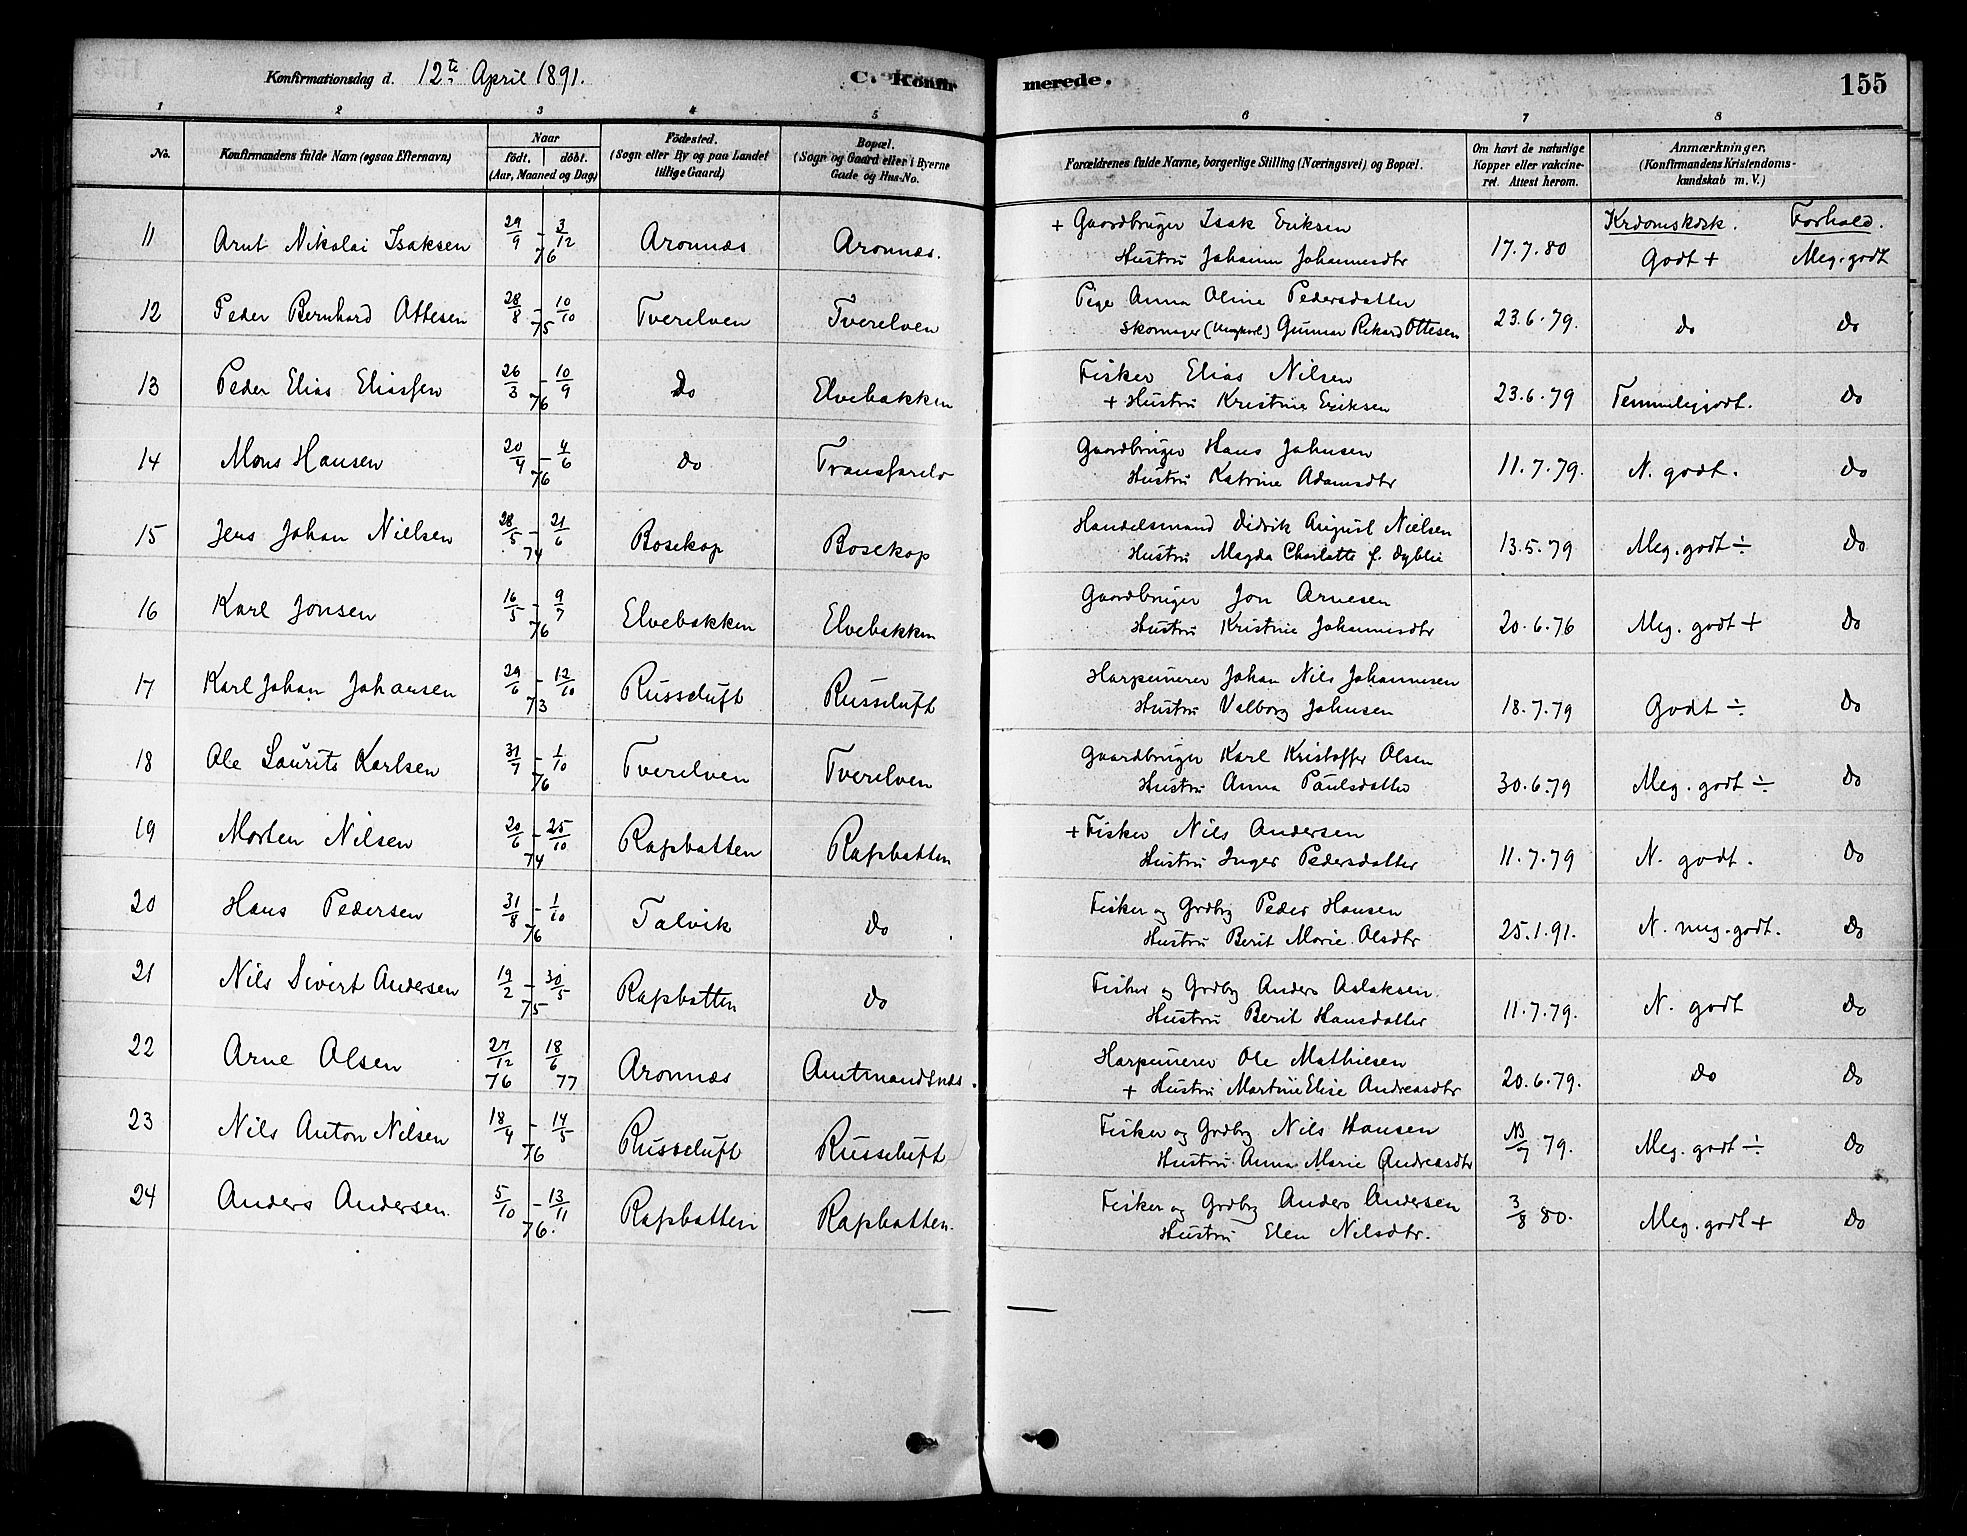 Konfirmationsdag d. 12te April 1891. C. Konfirmerede. 155
1 2 3 4 5 6 7 8
No. Konfirmandens fulde Navn (ogsaa Efternavn) Naar født. døbt. (Aar, Maaned og Dag) Fødested. (Sogn eller By og paa Landet tillige Gaard) Bopæl. (Sogn og Gaard eller i Byerne Gade og Hus-No. Forældrenes fulde Navne, borgerlige Stilling (Næringsvei) og Bopæl. Om havt de naturlige Kopper eller vakcineret. Attest herom. Anmærkninger. (Konfirmandens Kristendomskundskab m. V.)
Krdomskdsk. Forhold.
11 Arnt Nikolai Isaksen 29/9 - 3/12 76 Aronnæs Aronnæs. + Gaardbruger Isak Eriksen
Hustru Johanna Johannesdtr 17.7.80 Godt + Meg. godt
12 Peder Bernhard Ottesen 28/8 - 10/10 75 Tverelven Tverelven Pige Anna Oline Pedersdatter
Skomager (Ungkarl) Gunnar Rikard Ottesen 23.6.79. do do
13 Peder Elias Eliassen 26/3 - 10/9 76 Do Elvebakken Fisker Elias Nilsen
+ Hustru Kristine Eriksen 23.6.79 Temmelig godt. do
14 Mons Hansen 20/4 - 4/6 76 do Transfarelv Gaardbruger Hans Johnsen
Hustru Katrine Adamsdtr 11.7.79. N. godt. do
15 Jens Johan Nielsen 28/5 - 21/6 74 Bosekop Bosekop Handelsmand Didrik August Nielsen
Hustru Magda Charlotte f. Dyblie 13.5.79 Meg. godt ÷ do
16 Karl Jonsen 16/5 - 9/7 76 Elvebakken Elvebakken Gaardbruger Jon Arnesen
Hustru Kristine Johannesdtr 20.6.76 Meg. godt + do
17 Karl Johan Johansen 29/6 - 12/10 73 Russeluft Russeluft Harpunerer Johan Nils Johannesen
Hustru Valborg Johnsen 18.7.79 Godt ÷ do
18 Ole Laurits Karlsen 31/7 - 1/10 76 Tverelven Tverelven Gaardbruger Karl Kristoffer Olsen
Hustru Anna Paulsdatter 30.6.79 Meg. godt ÷ do
19 Morten Nilsen 20/6 - 25/10 74 Rafsbotten Rafsbotten + Fisker Nils Andersen
Hustru Inger Pedersdatter 11.7.79 N. godt. do
20 Hans Pedersen 31/8 - 1/10 76 Talvik do Fisker og Grdbrg Peder Hansen
Hustru Berit Marie Olsdtr 25.1.91. N. meg. godt. do
21 Nils Sivert Andersen 19/2 - 30/5 75 Rafsbotten do Fisker og Grdbrg Anders Aslaksen
Hustru Berit Hansdatter 11.7.79. N. godt do
22 Arne Olsen 27/12 76 18/6 77 Aronnæs Amtmandsnæs. Harpunerer Ole Mathiesen
+ Hustru Martine Elise Andreasdtr 20.6.79. do do
23 Nils Anton Nilsen 18/4 - 14/5 76 Russeluft Russeluft Fisker og Grdbrg Nils Hansen
Hustru Anna Marie Andreasdtr 79. Meg. godt ÷ do
24 Anders Andersen. 5/10 - 13/11 76. Rafsbotten Rafsbotten. Fisker og Grdbrg Anders Andersen
Hustru Elen Nilsdtr. 3/8 80. Meg. godt + do